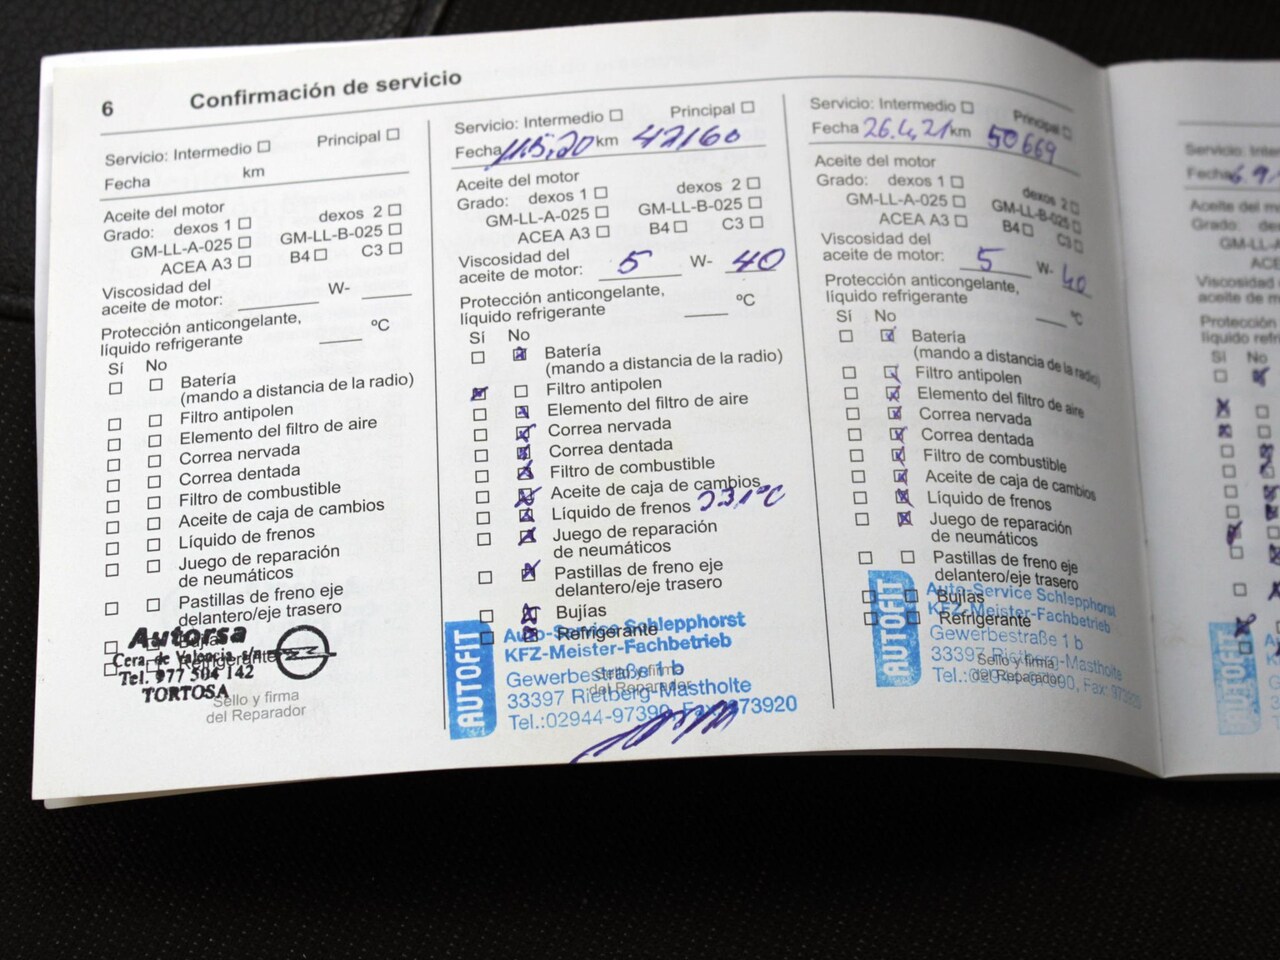 6
Confirmación de servicio
Servicio: Intermedio ☐ Principal ☐
Fecha km
Aceite del motor
Grado: dexos 1 ☐ dexos 2 ☐
GM-LL-A-025 ☐ GM-LL-B-025 ☐
ACEA A3 ☐ B4 ☐ C3 ☐
Viscosidad del
aceite de motor: ____ W- ____
Protección anticongelante,
líquido refrigerante ____ ºC
Sí No
Batería
(mando a distancia de la radio)
Filtro antipolen
Elemento del filtro de aire
Correa nervada
Correa dentada
Filtro de combustible
Aceite de caja de cambios
Líquido de frenos
Juego de reparación
de neumáticos
Pastillas de freno eje
delantero/eje trasero
Bujías
Refrigerante
Autorsa
Cera. de Valencia, s/n
Tel. 977 504 142
TORTOSA
Sello y firma
del Reparador
Servicio: Intermedio ☐ Principal ☐
Fecha km 42160
Aceite del motor
Grado: dexos 1 ☐ dexos 2 ☐
GM-LL-A-025 ☐ GM-LL-B-025 ☐
ACEA A3 ☐ B4 ☐ C3 ☐
Viscosidad del
aceite de motor: 5 W- 40
Protección anticongelante,
líquido refrigerante ____ ºC
Sí No
Batería
(mando a distancia de la radio)
Filtro antipolen
Elemento del filtro de aire
Correa nervada
Correa dentada
Filtro de combustible
Aceite de caja de cambios
Líquido de frenos 231°C
Juego de reparación
de neumáticos
Pastillas de freno eje
delantero/eje trasero
Bujías
Refrigerante
AUTOFIT
Auto-Service Schlepphorst
KFZ-Meister-Fachbetrieb
Gewerbestraße 1 b
33397 Rietberg-Mastholte
Tel.:02944-97390, Fax: 973920
Sello y firma
del Reparador
Servicio: Intermedio ☐ Principal ☐
Fecha 26.4.21 km 50669
Aceite del motor
Grado: dexos 1 ☐ dexos 2 ☐
GM-LL-A-025 ☐ GM-LL-B-025 ☐
ACEA A3 ☐ B4 ☐ C3 ☐
Viscosidad del
aceite de motor: 5 W- 40
Protección anticongelante,
líquido refrigerante ____ ºC
Sí No
Batería
(mando a distancia de la radio)
Filtro antipolen
Elemento del filtro de aire
Correa nervada
Correa dentada
Filtro de combustible
Aceite de caja de cambios
Líquido de frenos
Juego de reparación
de neumáticos
Pastillas de freno eje
delantero/eje trasero
Bujías
Refrigerante
AUTOFIT
Auto-Service Schlepphorst
KFZ-Meister-Fachbetrieb
Gewerbestraße 1 b
33397 Rietberg-Mastholte
Sello y firma
del Reparador
Servicio:
Fecha 6.9.
Aceite del
Grado:
GM-LL-
Viscosidad
aceite de
Protección
líquido
Sí No